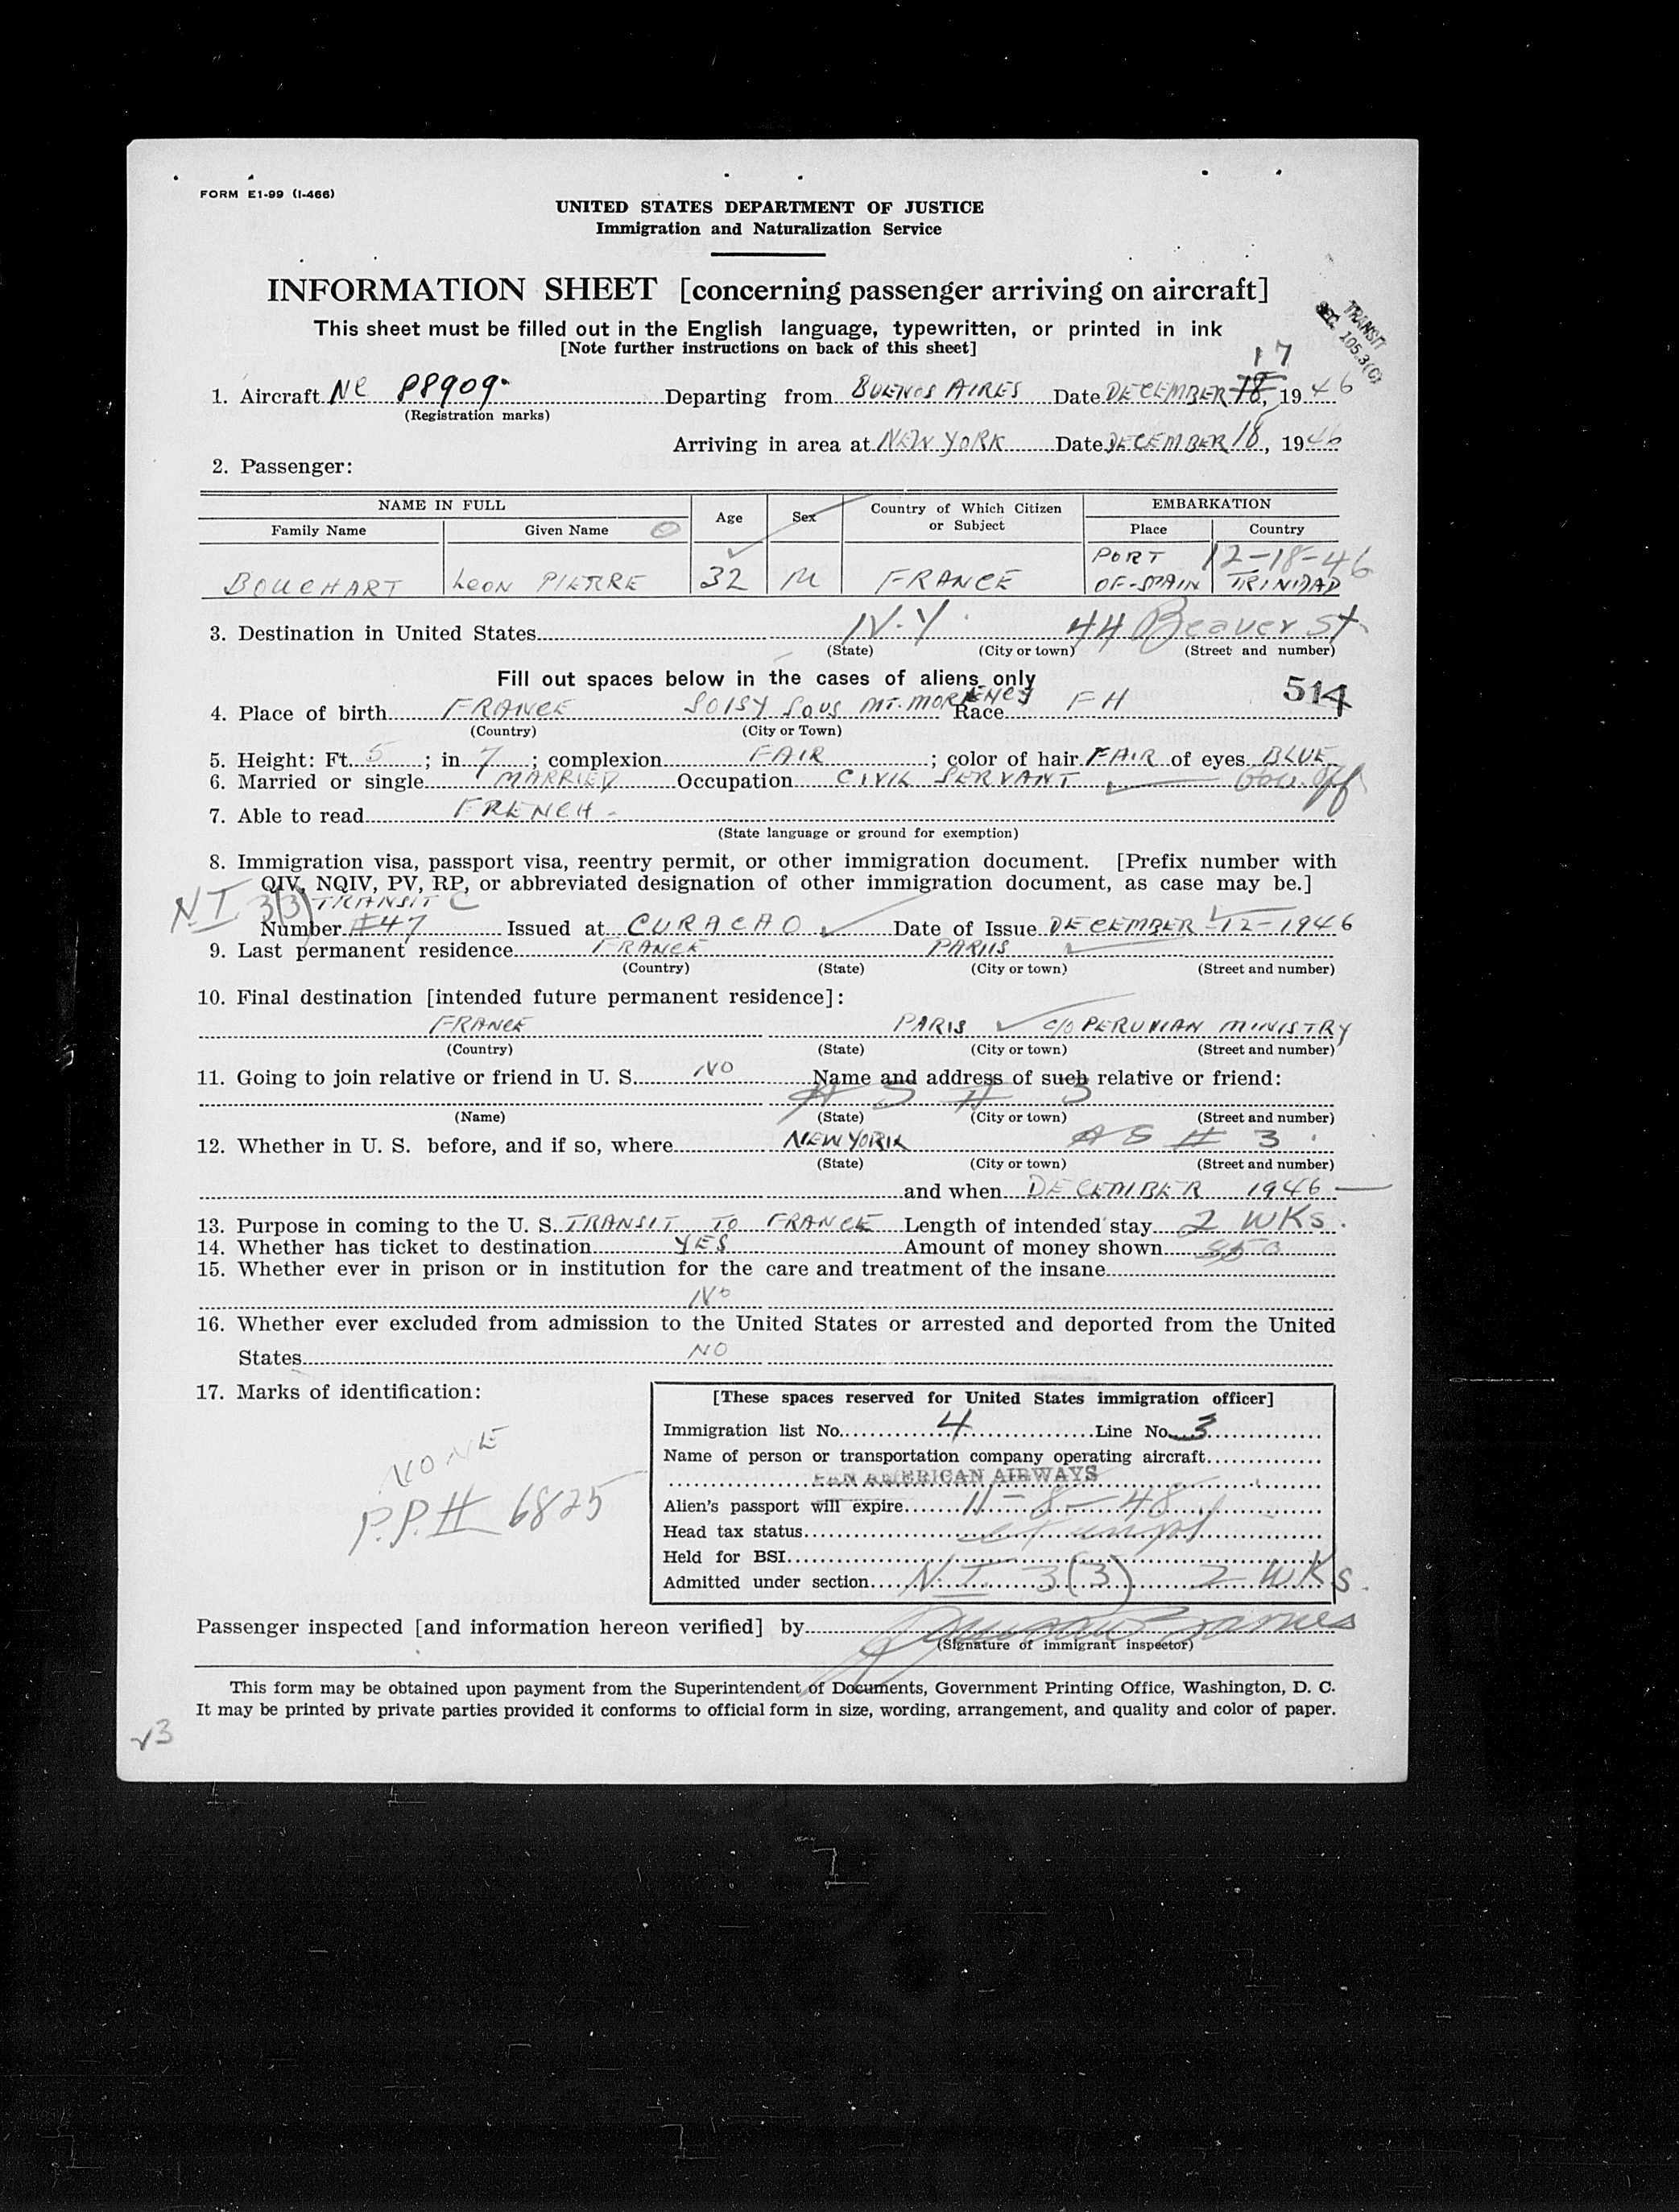 FORM E1-99 (I-466)
UNITED STATES DEPARTMENT OF JUSTICE
Immigration and Naturalization Service
INFORMATION SHEET [concerning passenger arriving on aircraft]
This sheet must be filled out in the English language, typewritten, or printed in ink
[Note further instructions on back of this sheet]
TRANSIT
SEC. 105.3(C)
17
1. Aircraft NC 88909 Departing from BUENOS AIRES Date DECEMBER 18, 1946
(Registration marks)
Arriving in area at NEW YORK Date DECEMBER 18, 1946
2. Passenger:
NAME IN FULL Age Sex Country of Which Citizen or Subject EMBARKATION
Family Name Given Name Place Country
PORT 12-18-46
BOUCHART LEON PIERRE 32 M FRANCE OF-SPAIN TRINIDAD
3. Destination in United States N.Y. 44 Beaver St
(State) (City or town) (Street and number)
Fill out spaces below in the cases of aliens only
514
4. Place of birth FRANCE SOISY SOUS MT. MORENCY Race FH
(Country) (City or Town)
5. Height: Ft. 5; in. 7; complexion FAIR; color of hair FAIR of eyes BLUE
6. Married or single MARRIED Occupation CIVIL SERVANT Gov. Off
7. Able to read FRENCH
(State language or ground for exemption)
8. Immigration visa, passport visa, reentry permit, or other immigration document. [Prefix number with
QIV, NQIV, PV, RP, or abbreviated designation of other immigration document, as case may be.]
NI 3(3) TRANSIT C
Number #47 Issued at CURACAO Date of Issue DECEMBER 12-1946
9. Last permanent residence FRANCE PARIS
(Country) (State) (City or town) (Street and number)
10. Final destination [intended future permanent residence]:
FRANCE PARIS C/O PERUVIAN MINISTRY
(Country) (State) (City or town) (Street and number)
11. Going to join relative or friend in U. S. NO Name and address of such relative or friend:
AS # 3
(Name) (State) (City or town) (Street and number)
12. Whether in U. S. before, and if so, where NEW YORK AS # 3
(State) (City or town) (Street and number)
and when DECEMBER 1946
13. Purpose in coming to the U. S. TRANSIT TO FRANCE Length of intended stay 2 WKS.
14. Whether has ticket to destination YES Amount of money shown
15. Whether ever in prison or in institution for the care and treatment of the insane
NO
16. Whether ever excluded from admission to the United States or arrested and deported from the United
States NO
17. Marks of identification:
NONE
P.P. # 6825
[These spaces reserved for United States immigration officer]
Immigration list No. 4 Line No. 3
Name of person or transportation company operating aircraft
PAN AMERICAN AIRWAYS
Alien's passport will expire 11-8-48
Head tax status exempt
Held for BSI
Admitted under section N.I. 3(3) 2 WKS.
Passenger inspected [and information hereon verified] by
(Signature of immigrant inspector)
This form may be obtained upon payment from the Superintendent of Documents, Government Printing Office, Washington, D. C.
It may be printed by private parties provided it conforms to official form in size, wording, arrangement, and quality and color of paper.
√3